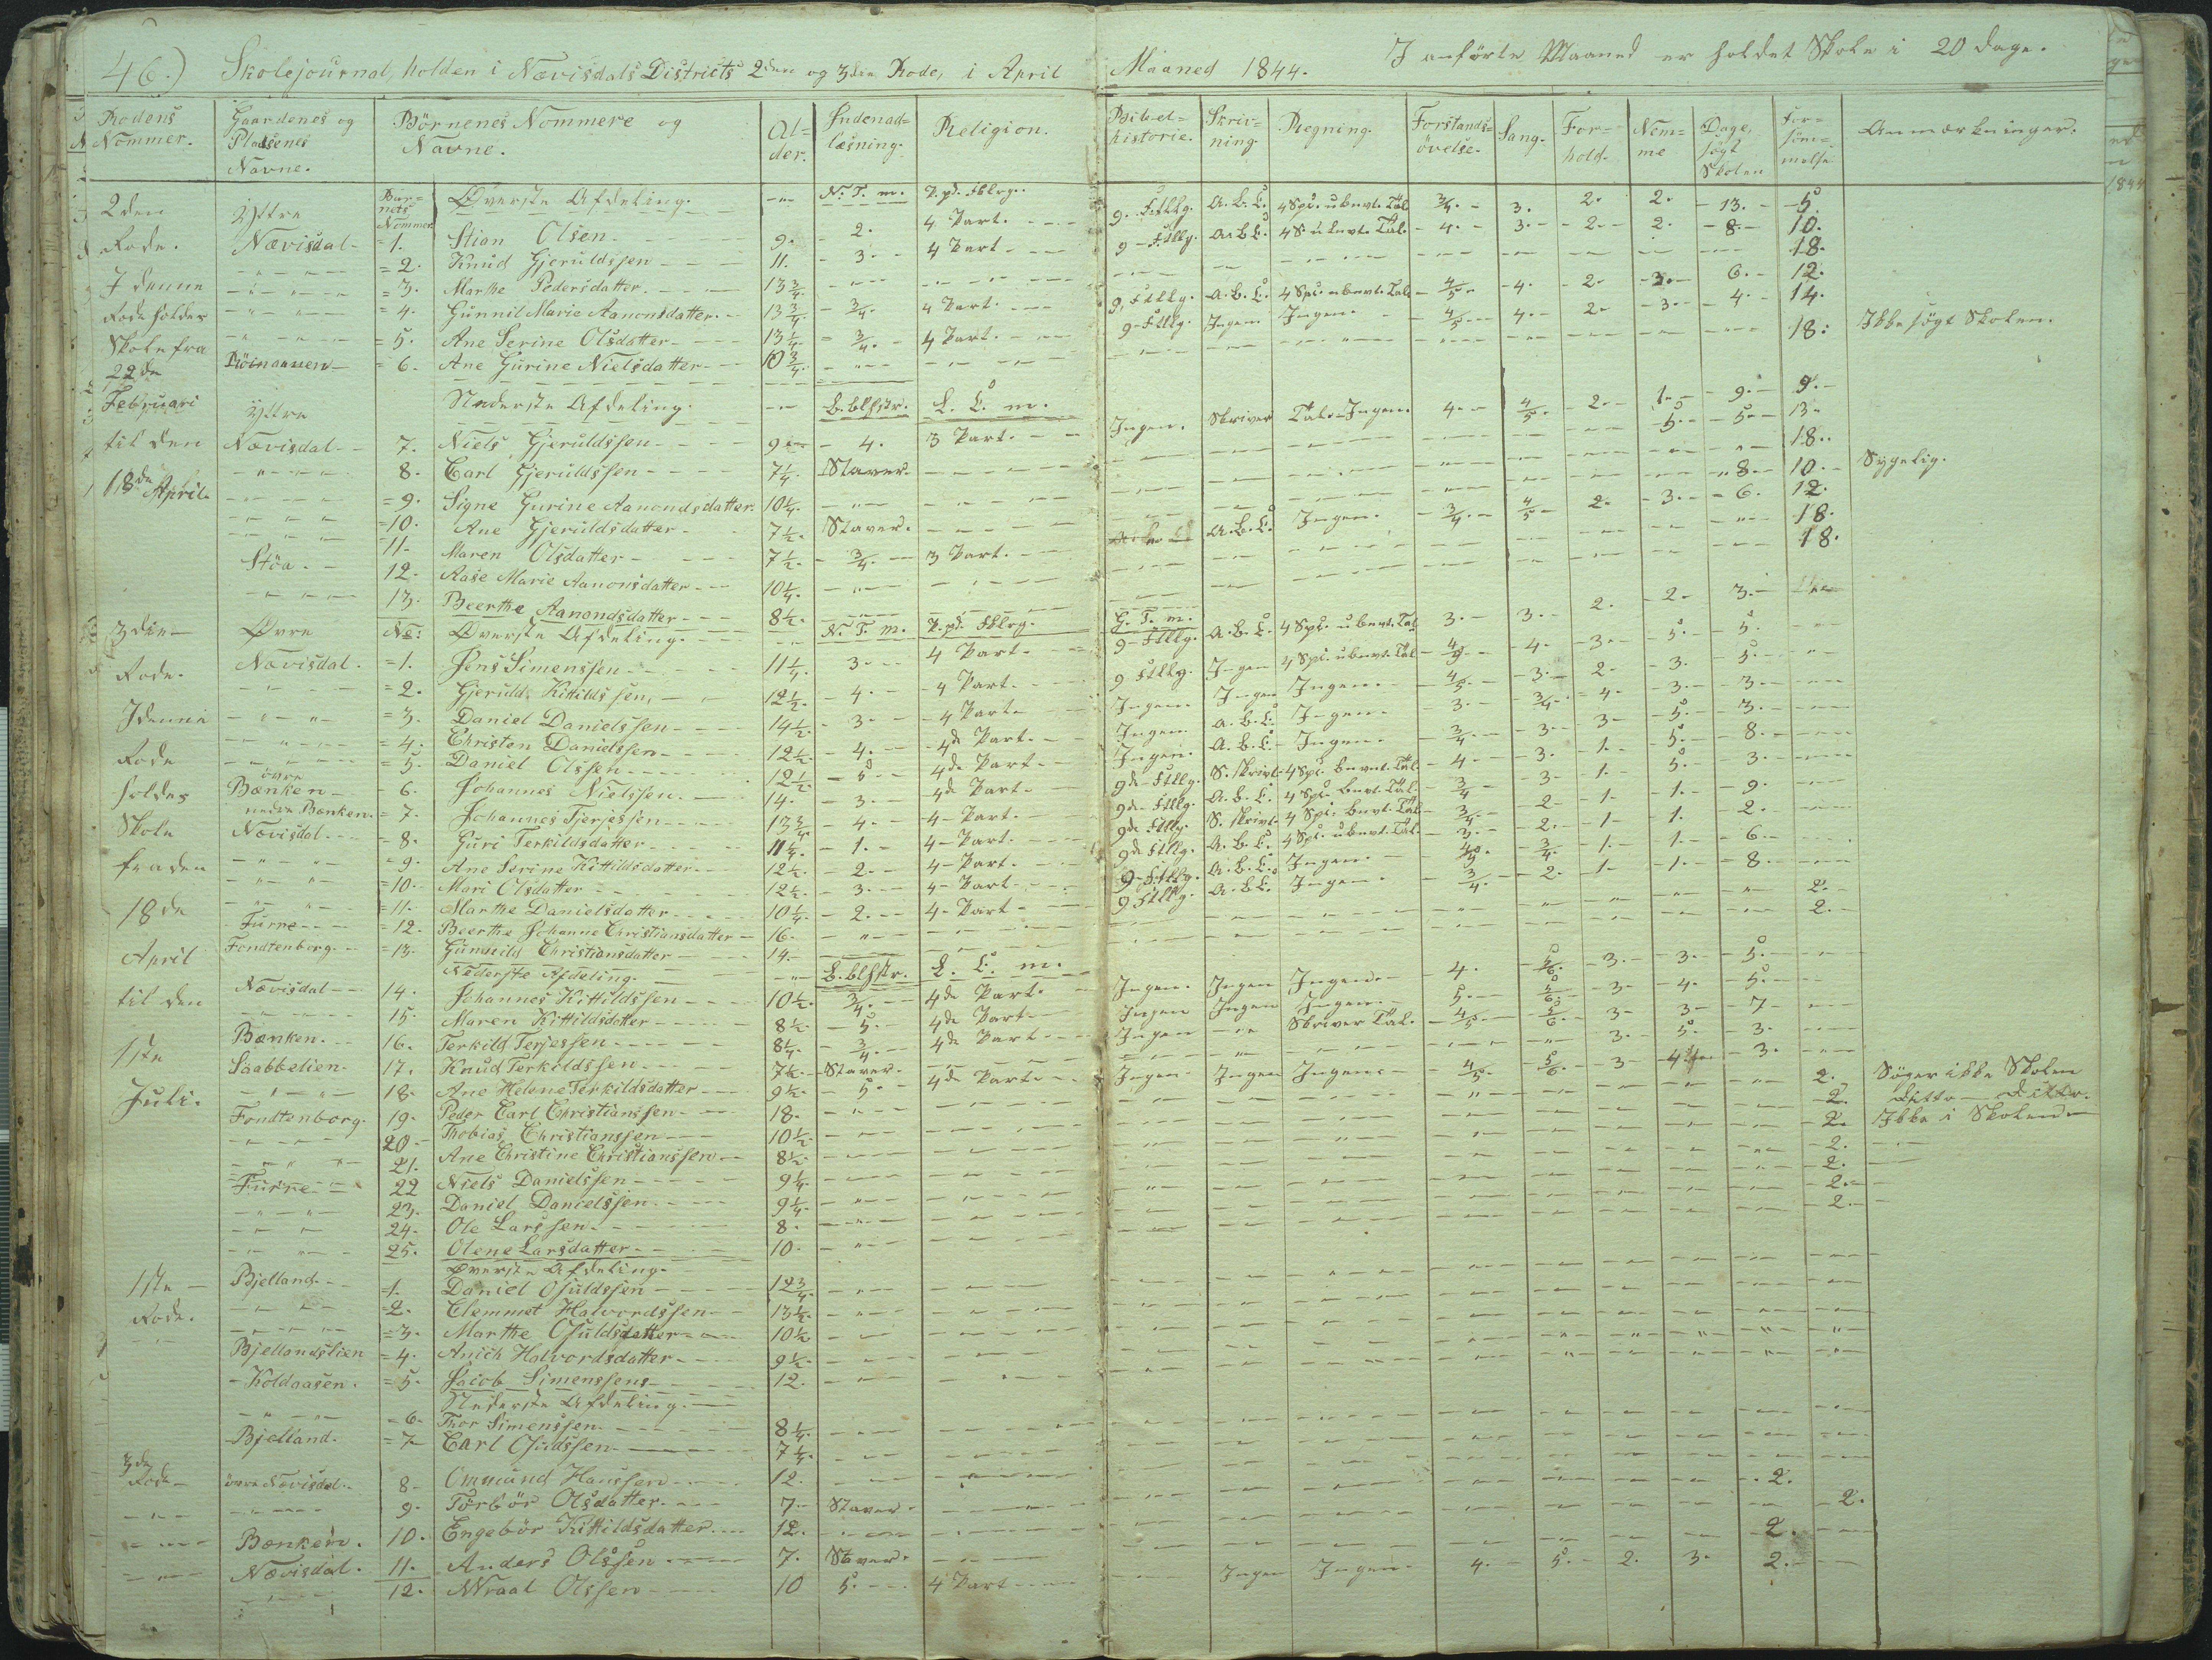 46.) Skolejournal, holden i Nævisdals Districts 2den og 3die Rode, i April Maaned 1844. I anförte Maaned er holdet Skole i 20 dage.
Rodens Nommer. | Gaardenes og Pladsenes Navne. | Börnenes Nommere og Navne. | Al-der. | Indenad-læsning. | Religion. | Bibel-historie. | Skriv-ning. | Regning. | Forstands-övelse. | Sang. | For-hold. | Nem-me | Dage, sögt Skolen | For-söm-melse. | Anmærkninger.
2den Ÿttre Bar-nets Nommer Øverste Afdeling. N. T. m.
Rode. Nævisdal 1. Stian Olsen 9. 2. 4 Part. 9. A.B.C. 3/4. 3. 2. 2. 13. 5.
I denne 2. Knud Gjeruldssen 11. 3. 4 Part 9 A.B.C. 4. 3. 2. 2. 8. 10.
3. Marthe Pedersdatter. 13 3/4 18.
Rode holdes 4. Gunnil Marie Aanonsdatter. 13 3/4 3/4. 4 Part. 9. A.B.C. 4/5 4. 2. 6. 12.
Skole fra 5. Ane Serine Olsdatter 13 1/4 3/4. 4 Part. 9. Ingen Ingen. 4/5 4. 2. 3. 4. 14.
22de 6. Ane Gurine Nielsdatter 10 3/4. 18. Ikke sögt Skolen.
Februari Ÿttre Nederste Afdeling.
til den Nævisdal 7. Niels Gjeruldssen 9 4. 3 Part. Ingen. Skriver Tal. Ingen. 4. 4/5. 2. 1. 9. 9.
8. Carl Gjeruldssen 7 1/4. Staver. 5. 5. 13.
18de April. 9. Signe Gurine Aanondsdatter. 10 1/4. 18.
10. Ane Gjeruldsdatter 7 1/2. Staver. 8. 10. Sygelig.
11. Maren Olsdatter 7 1/2. 3/4. 3 Part. A.B.C. Ingen. 3/4. 4/5 2. 3. 6. 12.
Stöa. 12. Aase Marie Aanonsdatter 10 1/4. 18.
13. Beerthe Aanondsdatter 8 1/2. 18.
3die Øvre No: Øverste Afdeling. N. T. m.
Rode. Nævisdal. 1. Jens Simenssen 11 1/4. 3. 4 Part. 9 A.B.C. 3. 3. 2. 2. 3.
2. Gjeruld Kittildssen, 12 1/2. 4. 4 Part. 9 Ingen 4. 3. 5. 5.
I denne 3. Daniel Danielssen 14 1/2. 3. 4 Part. Ingen. Ingen Ingen. 4/5. 3. 2. 3. 5.
4. Christen Danielssen 12 1/2. 4. 4de Part. Ingen A.B.C. Ingen. 3. 3/4. 4. 3. 3.
Rode 5. Daniel Olssen 12 1/2. 5. 4de Part. Ingen. A.B.C. Ingen. 3/4 3. 3. 5. 3.
holdes övre Bænken 6. Johannes Nielssen. 14. 3. 4de Part. 9de 4. 3. 1. 5. 8.
nedre Bænken. 7. Johannes Terjessen 13 3/4. 4. 4 Part. 9de A.B.C. 3/4 3. 1. 5. 3.
Skole Nævisdal 8. Guri Terkildsdatter 11 1/4. 1. 4 Part. 9de 3/4. 2. 1. 1. 9.
9. Ane Serine Kittildsdatter 12 1/2. 2. 4 Part. 9de A.B.C. 3. 2. 1. 1. 2.
fra den 10. Mari Olsdatter 12 1/2. 3. 4 Part. 9 A.B.C. Ingen. 3/4. 1. 1. 6.
11. Marthe Danielsdatter 10 1/4. 2. 4 Part. 9. Ingen. 3/4. 2. 1. 1. 8.
18de Furre 12. Beerthe Johanne Christiansdatter 16. 2.
April Fondtenborg. 13. Gunnild Christiansdatter 14. 2.
Nederste Afdeling.
til den Nævisdal 14. Johannes Kittildssen 10 1/2. 3/4. 4de Part. Ingen. Ingen Ingen. 4. 5/6. 3. 3. 5.
15. Maren Kittildsdatter 8 1/2. 5. 4de Part. Ingen Ingen Ingen. 5. 5/6. 3. 4. 5.
1ste Bænken. 16. Terkild Terjessen 8 1/4. 3/4. 4de Part Ingen Skriver Tal. 4/5. 5/6. 3. 3. 7.
Saabbelien. 17. Knud Terkildssen 7 1/2. Staver. 3. 5. 3.
Juli. 18. Ane Helene Terkildsdatter 9 1/2. 5. 4de Part. Ingen. Ingen Ingen. 4/5. 5/6. 3 3.
Fondtenborg. 19. Peder Carl Christianssen 18. 2. Söger ikke Skolen
20. Thobias Christianssen 10 1/2. 2. ditto ditto.
21. Ane Christine Christianssen 8 1/2. 2. Ikke i Skolen
Furre 22 Niels Danielssen 9 1/4. 2.
23. Daniel Danielssen 9 1/4. 2.
24. Ole Larssen 8. 2.
25. Olene Larsdatter 10. 2.
Øverste Afdeling.
1ste Bjelland. 1. Daniel Osuldssen 12 3/4.
Rode. 2. Clemmet Halvordssen 13 1/2.
3. Marthe Osuldsdatter 10 1/2
Bjellandslien 4. Anich Halvordsdatter 9 1/2.
Koldaasen. 5. Jacob Simenssens 12.
Nederste Afdeling.
6. Thor Simenssen 8 1/4.
Bjelland. 7. Carl Osuldssen 7 1/4.
3de Rode övre Nævisdal. 8. Ommund Hanssen 12. 2.
9. Törbör Olsdatter. 7. Staver. 2.
Bænken. 10. Engebör Kittildsdatter. 12. 2.
Nævisdal. 11. Anders Olssen 7. Staver.
12. Wraal Olssen 10 5. 4 Part Ingen Ingen. 4. 5. 2. 3. 2.